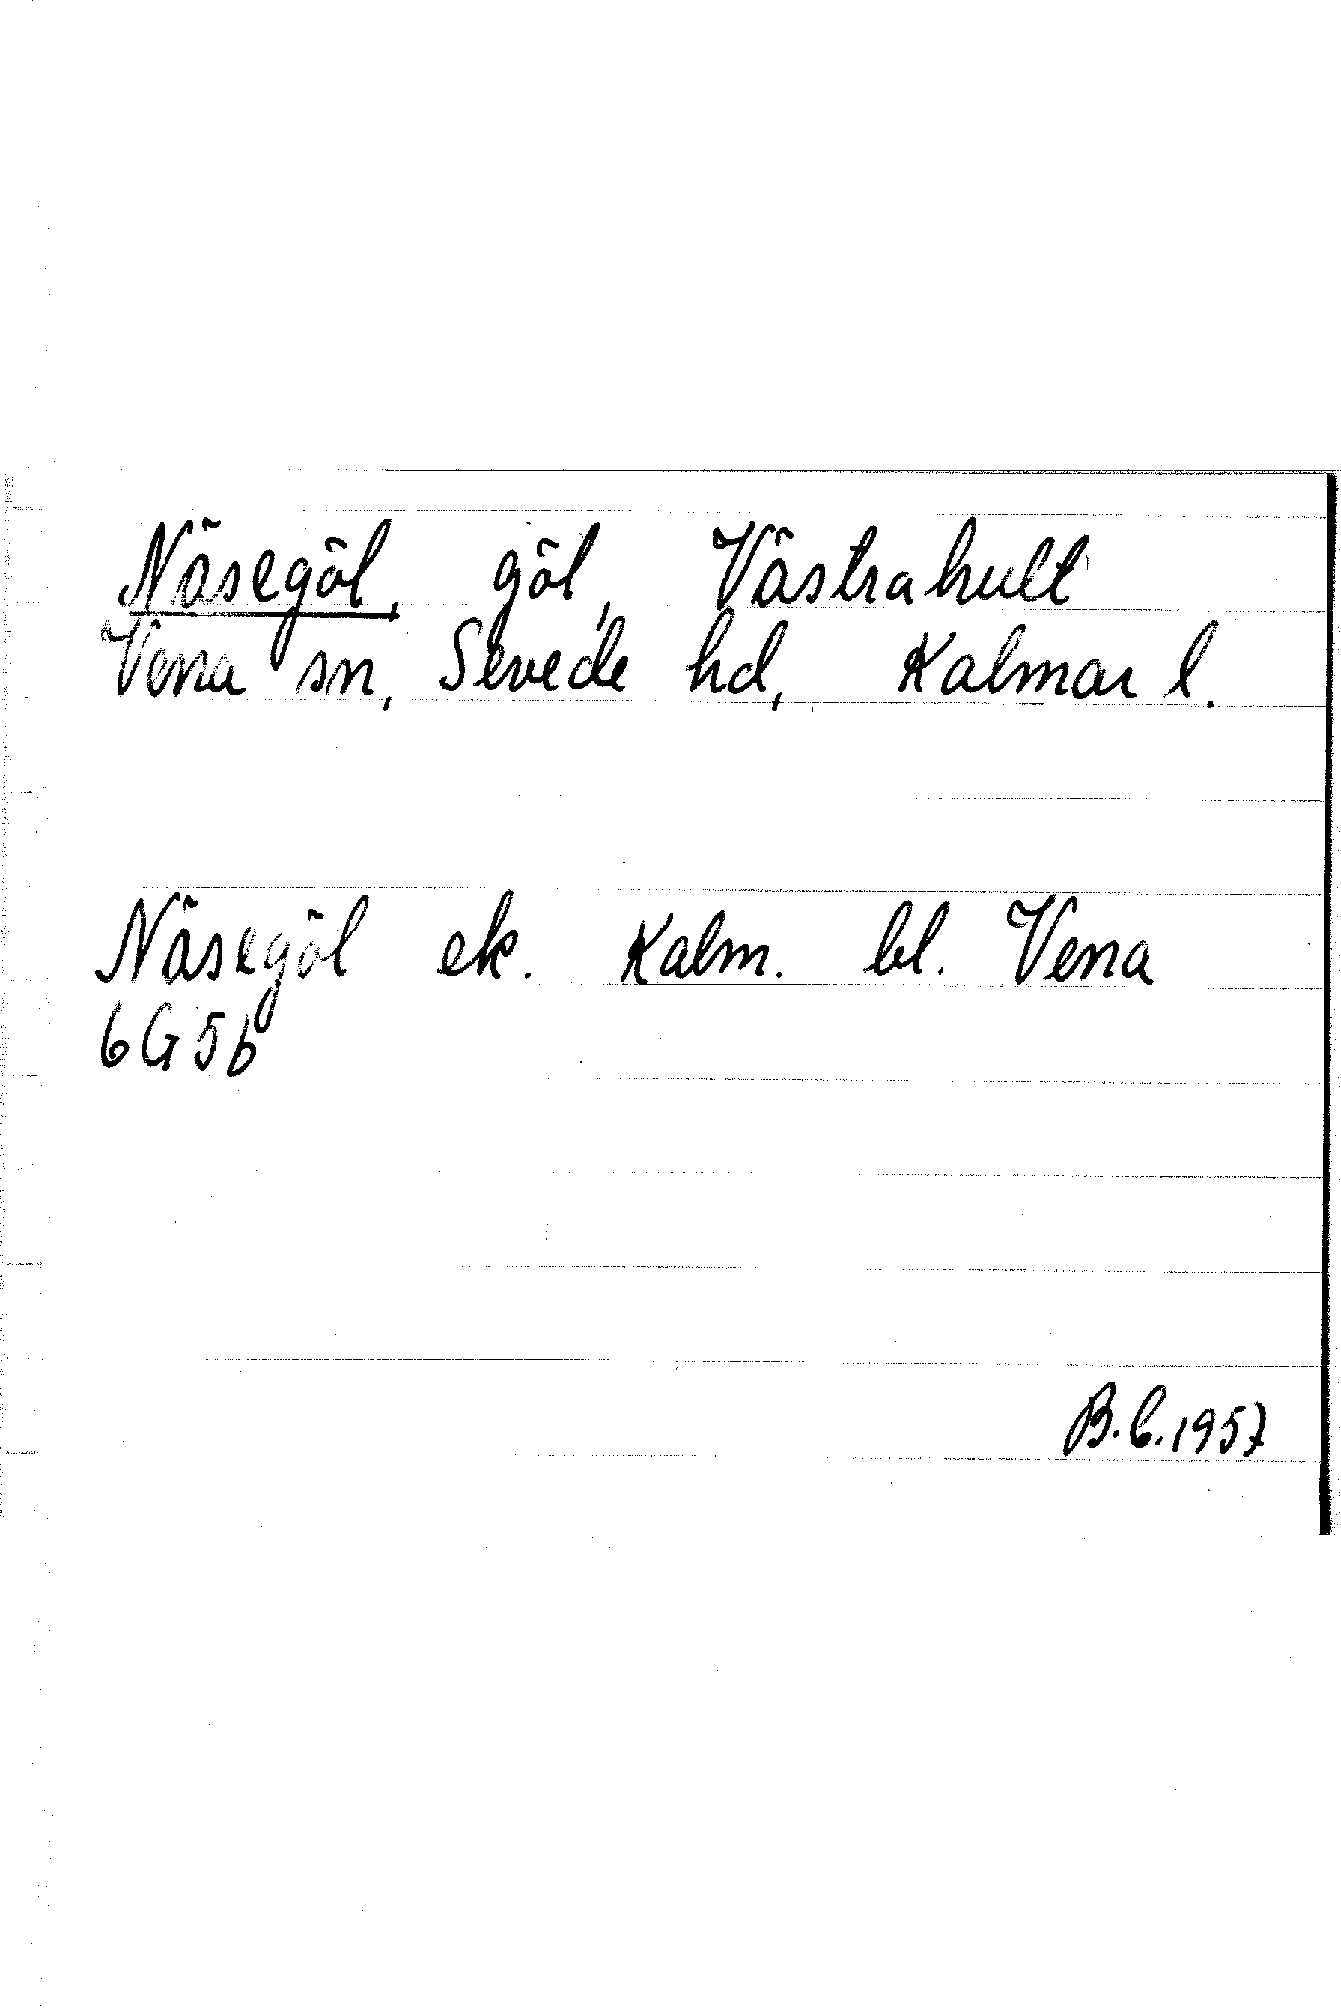 Näsegöl, göl, Västrahult
Vena sn, Sevede hd, Kalmar l.
Näsegöl ek. Kalm. bl. Vena
6G5b
B.C.1957